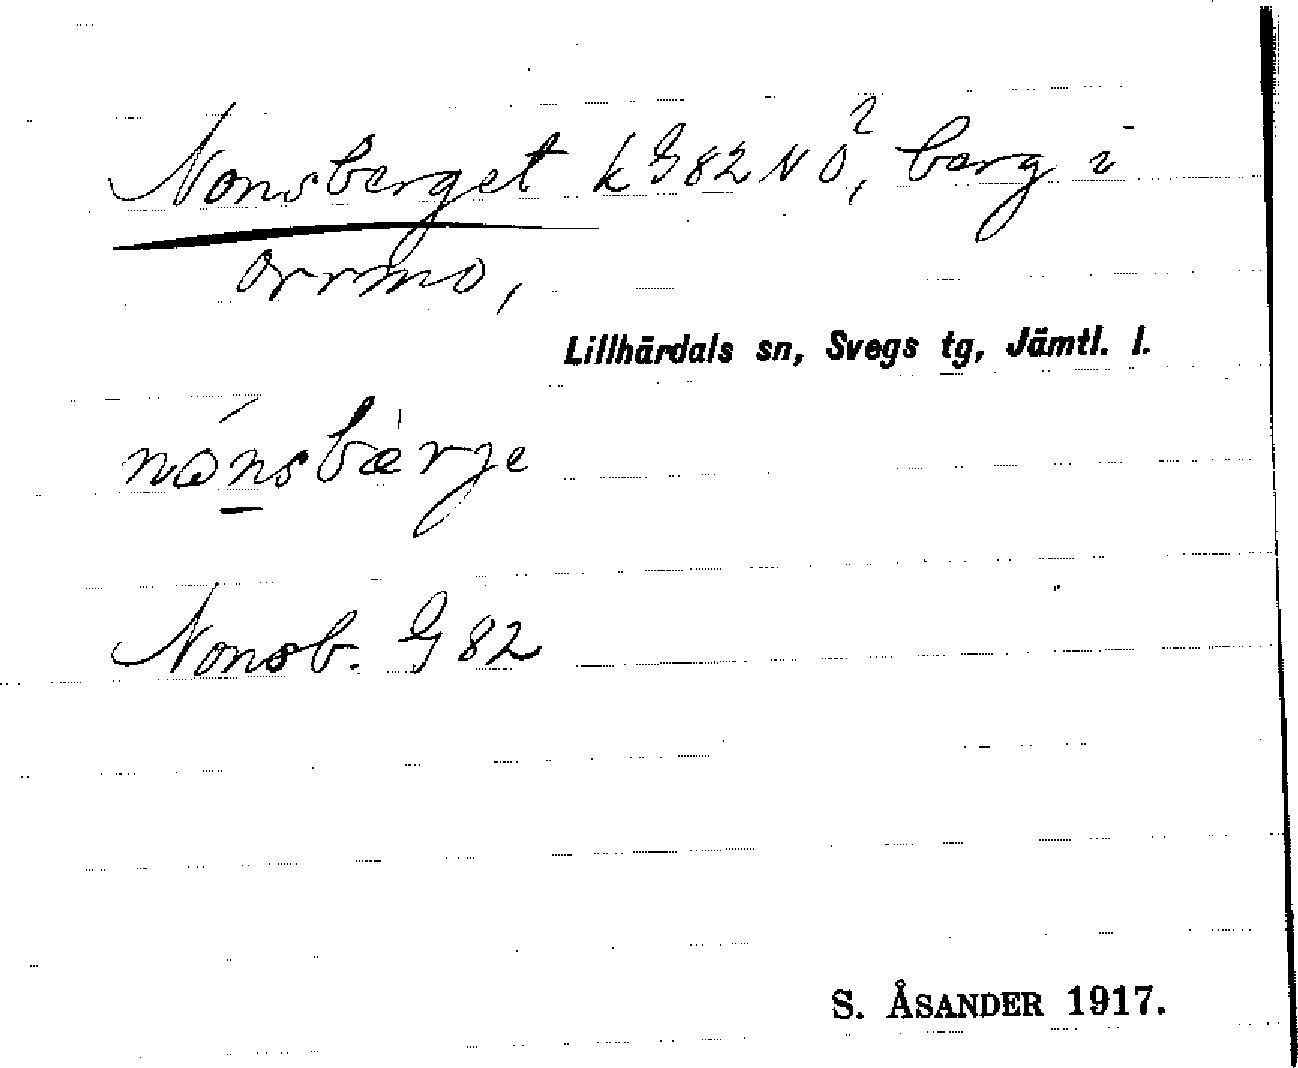 Nonsberget k G82 NÖ², berg i
Orrmo,
Lillhärdals sn, Svegs tg, Jämtl. l.
nónsbærje
Nonsb. G 82
S. ÅSANDER 1917.